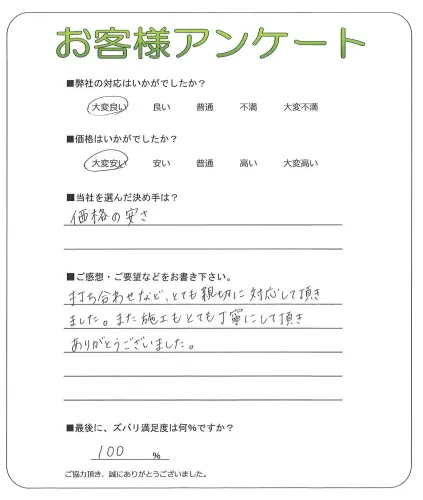 お客様アンケート
■弊社の対応はいかがでしたか？
大変良い 良い 普通 不満 大変不満
■価格はいかがでしたか？
大変安い 安い 普通 高い 大変高い
■当社を選んだ決め手は？
価格の安さ
■ご感想・ご要望などをお書き下さい。
打ち合わせなど、とても親切に対応して頂き
ました。また施工もとても丁寧にして頂き
ありがとうございました。
■最後に、ズバリ満足度は何%ですか？
100 %
ご協力頂き、誠にありがとうございました。